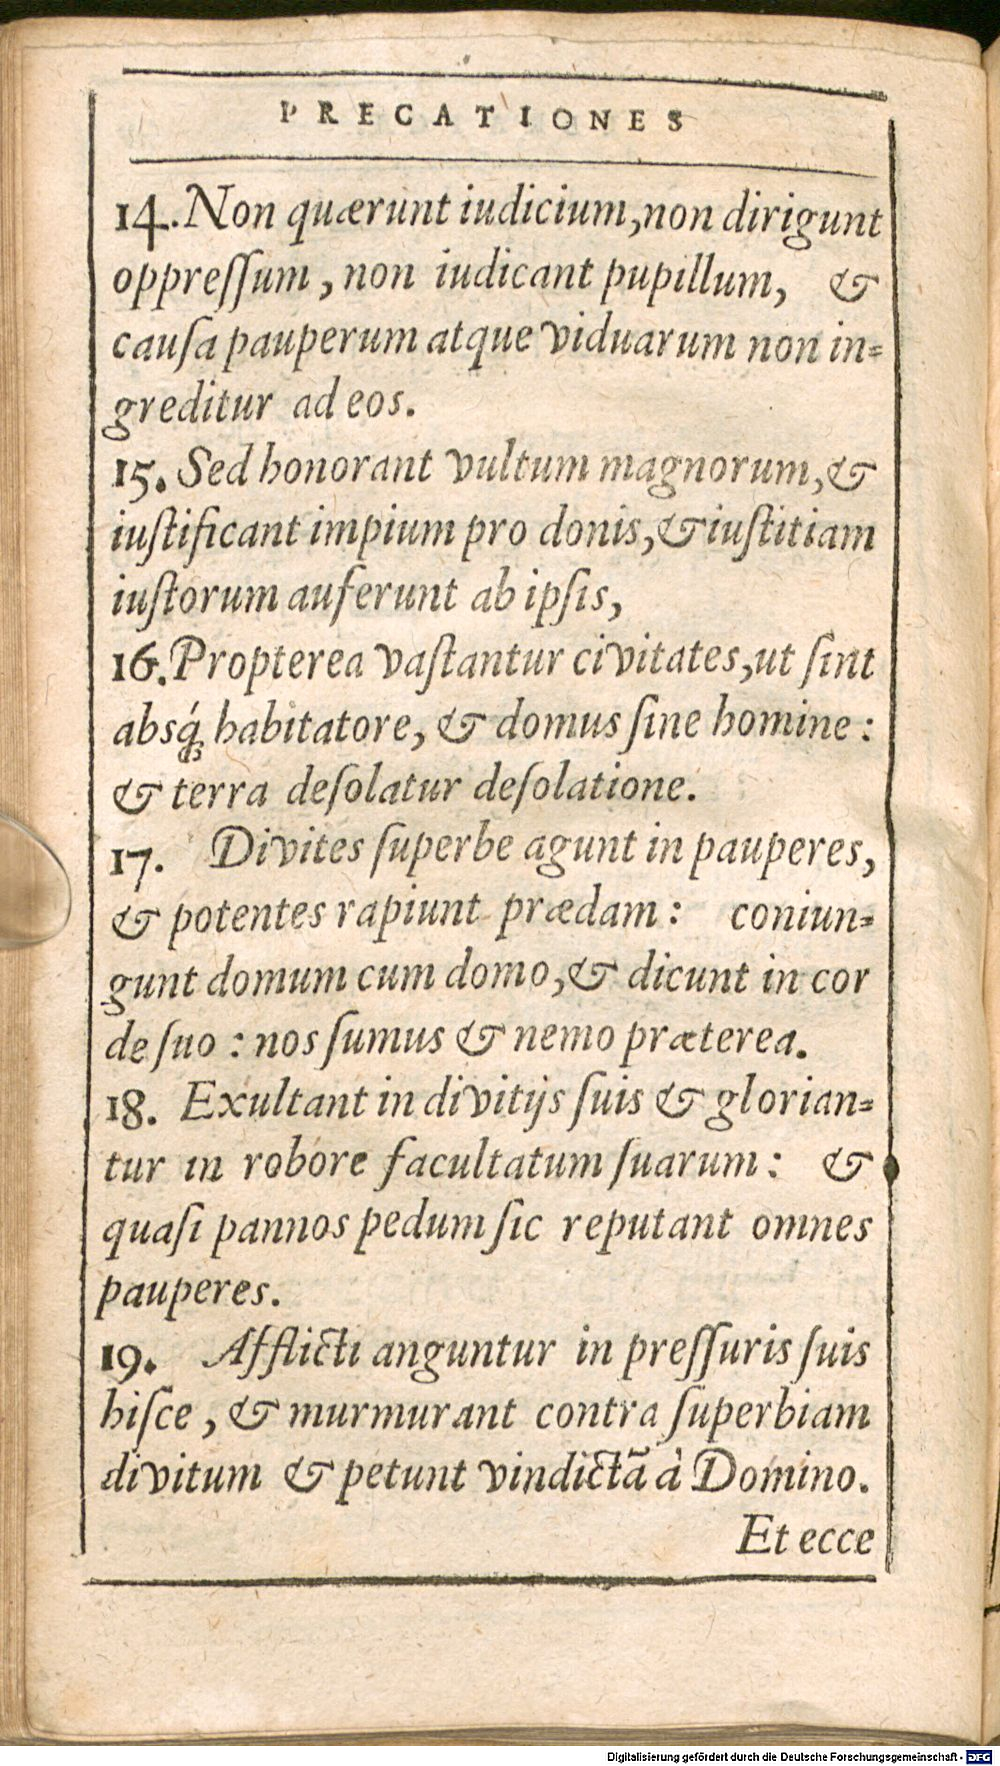 PRECATIONES
14. Non quærunt iudicium, non dirigunt
oppreſſum, non iudicant pupillum, &
cauſa pauperum atque viduarum non in=
greditur ad eos.
15. Sed honorant vultum magnorum, &
iuſtificant impium pro donis, & iuſtitiam
iuſtorum auferunt ab ipſis,
16. Propterea vaſtantur civitates, ut ſint
absq́; habitatore, & domus ſine homine:
& terra deſolatur deſolatione.
17. Divites ſuperbe agunt in pauperes,
& potentes rapiunt prædam: coniun=
gunt domum cum domo, & dicunt in cor
de ſuo: nos ſumus & nemo præterea.
18. Exultant in divitijs ſuis & glorian=
tur in robore facultatum ſuarum: &
quaſi pannos pedum ſic reputant omnes
pauperes.
19. Afflicti anguntur in preſſuris ſuis
hiſce, & murmurant contra ſuperbiam
divitum & petunt vindictã à Domino.
Et ecce
Digitalisierung gefördert durch die Deutsche Forschungsgemeinschaft - DFG